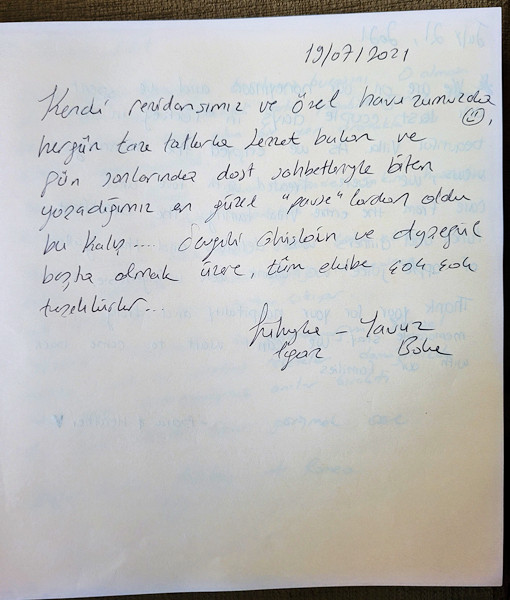 19/07/2021
Kendi rezidansımız ve özel havuzumuzda
☺,
hergün taze tatlarla lezzet bulan ve
gün sonlarında dost sohbetleriyle biten
yaşadığımız en güzel "pause"lardan oldu
bu kalış.... Sevgili Ghislain ve Ayşegül
başta olmak üzere, tüm ekibe çok çok
teşekkürler...
- Yavuz